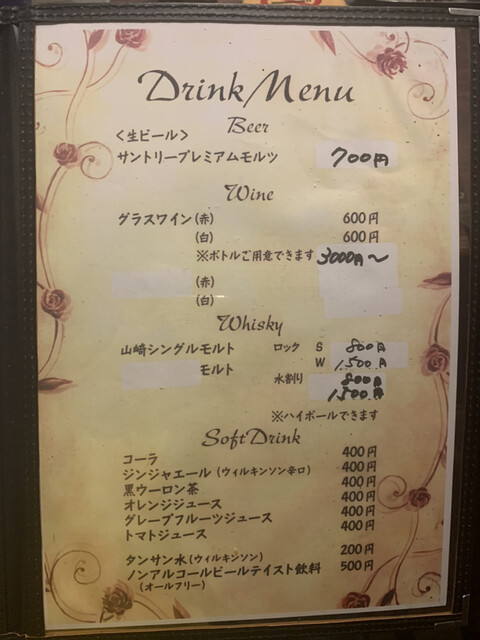 Drink Menu
Beer
＜生ビール＞
サントリープレミアムモルツ 700円
Wine
グラスワイン (赤) 600円
(白) 600円
※ボトルご用意できます 3000円〜
(赤)
(白)
Whisky
山崎シングルモルト ロック S 800円
モルト W 1,500円
水割り 800円
1,500円
※ハイボールできます
Soft Drink
コーラ 400円
ジンジャエール (ウィルキンソン辛口) 400円
黒ウーロン茶 400円
オレンジジュース 400円
グレープフルーツジュース 400円
トマトジュース 400円
タンサン水 (ウィルキンソン) 200円
ノンアルコールビールテイスト飲料 500円
(オールフリー)